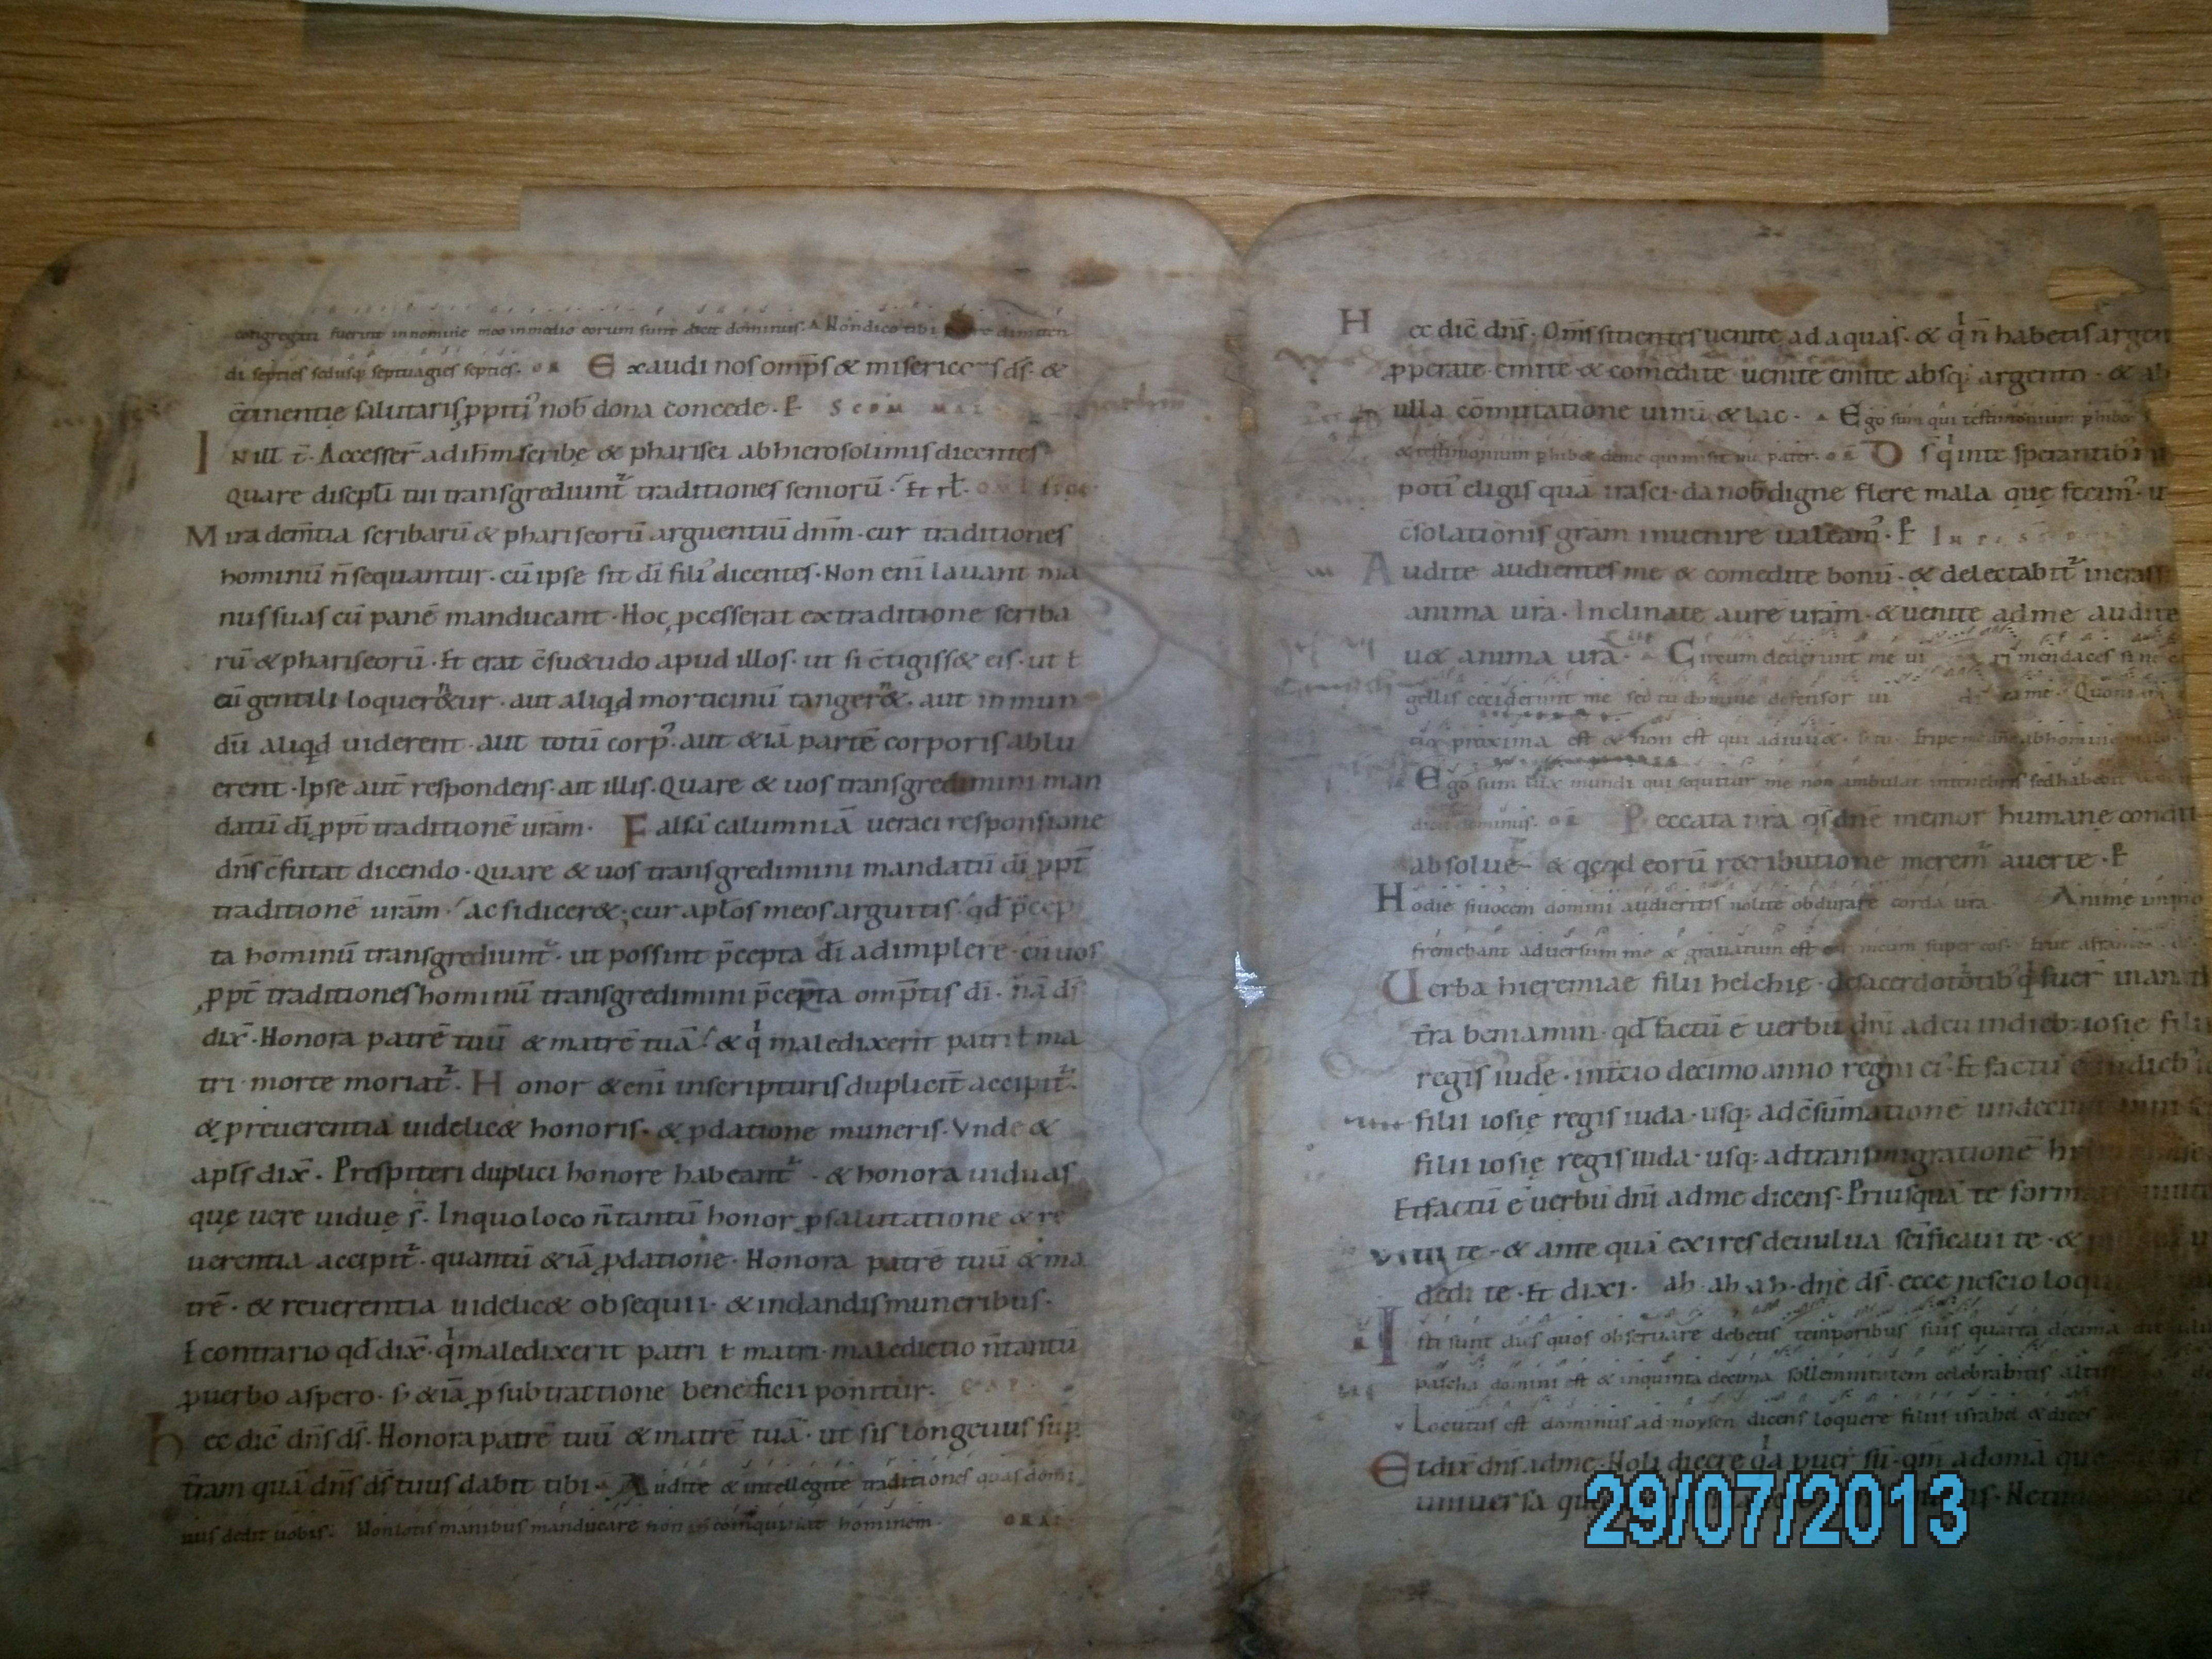 congregati fuerint in nomine meo in medio eorum sum dicit dominus. A Non dico tibi dimitten
di septies sed usq; septuagies septies. OR Exaudi nos omp̄s & misericors ds̄. &
c̄tinentie salutaris ꝓpiti' nob̄ dona concede. P
IN ILL T̄. Accesser̄ ad ih̄m scribe & pharisei ab hierosolimis dicentes
Quare discip̄li tui transgrediunt̄ traditiones senioru᷑. Et rl̄.
Mira dem̄tia scribarū & phariseorū arguentiū dnm̄. cur traditiones
hominū n̄ sequantur. cū ipse sit dī fili' dicentes. Non enī lavant ma
nus suas cū panē manducant. Hoc ꝓcesserat ex traditione scriba
rū & phariseorū. Et erat c̄su&udo apud illos. ut si c̄tigiss& eis. ut ł
cū gentili loquer&ur. aut aliqd morticinū tanger&. aut inmun
dū aliqd uiderent. aut totū corp'. aut &iā partē corporis ablu
erent. Ipse aut̄ respondens. ait illis. Quare & uos transgredimini man
datū dī ꝓpt̄ traditionē urām. Falsā calumniā ueraci responsione
dn̄s c̄futat dicendo. Quare & uos transgredimini mandatū dī ꝓpt̄
traditionē urām. Ac si dicer&; cur apl̄os meos arguitis qđ p̄cep
ta hominū transgrediunt̄. ut possint p̄cepta dī adimplere. cū uos
ꝓpt̄ traditiones hominū transgredimini p̄cepta omp̄tis dī. nā ds̄
dix̄. Honora patrē tuū & matrē tuā. & qi maledixerit patri ł ma
tri morte moriat̄. Honor &enī in scripturis duplicit̄ accipit̄.
& p reuerentia uidelic& honoris. & p datione muneris. Vnde &
apl̄s dix̄. Presbiteri duplici honore habeant̄. & honora uiduas
quę uere uiduę s̄. In quo loco n̄ tantū honor p salutatione & re
uerentia accipit̄. quantū &iā p datione. Honora patrē tuū & ma
trē. & reuerentia uidelic& obsequii. & in dandis muneribus.
E contrario qđ dix̄. qi maledixerit patri ł matri. maledictio n̄ tantū
p uerbo aspero. s; &iā p subtractione beneficii ponitur.
Hec dic̄ dn̄s ds̄. Honora patrē tuū & matrē tuā. ut sis longeuus sup
tr̄am quā dn̄s ds̄ tuus dabit tibi. Audite & intellegite traditiones quas domi
nus dedit uobis. Non lotis manibus manducare non coinquinat hominem. ORAT.
Hec dic̄ dn̄s. Oms̄ sitientes uenite ad aquas. & qi n̄ habetis argen
ꝓperate emite & comedite uenite emite absq; argento & ab
ulla cōmutatione uinū & lac. Ego sum qui testimonium phibeo
& testimonium phib& de me qui misit me pater. OR Ds qi in te sperantib'
poti' eligis quā irasci. da nob̄ digne flere mala quę fecim'. u
c̄solationis grām inuenire ualeam'. P
Audite audientes me & comedite bonū. & delectabit̄ in crass
anima ur̄a. Inclinate aurē urām. & uenite ad me audite
u& anima ur̄a. Circum dederunt me ui ri mendaces sine
gellis ceciderunt me sed tu domine defensor Quoniam
proxima est & non est qui adiuu& Eripe me ab homine
Ego sum lux mundi qui sequitur me non ambulat in tenebris sed habebit
dicit dominus. OR Peccata nr̄a qs̄ dnē memor humanę condit
absolue & qcqd eorū r&ributione merem' auerte. P
Hodie si uocem domini audieritis nolite obdurare corda ur̄a.
fremebant aduersum me & grauatum est cor meum super eos
Uerba hieremiae filii helchię. de sacerdotib' qi fuer̄ in
tr̄a beniamin. qđ factū ē uerbū dnī ad eū in dieb; iosię filii
regis iudę. in tercio decimo anno regni ei'. Et factū ē in dieb'
filii iosię regis iuda. usq; ad c̄sūmationē undecim
filii iosię regis iuda. usq; ad transmigrationē
Et factū ē uerbū dnī ad me dicens. Priusquā te form
te. & ante quā exires de uulua sc̄ificaui te. &
dedi te. Et dixi. ah. ah. ah. dn̄e ds̄. ecce nescio loqu
Isti sunt dies quos obseruare debetis temporibus suis quarta decima
pascha domini est & in quinta decima sollemnitatem celebrabitis altiss
Locutus est dominus ad moysen dicens loquere filiis israhel & dices
Et dix̄ dn̄s ad me. Noli dicere qa puer sū. qm̄ ad omā que
uniuersa
29/07/2013